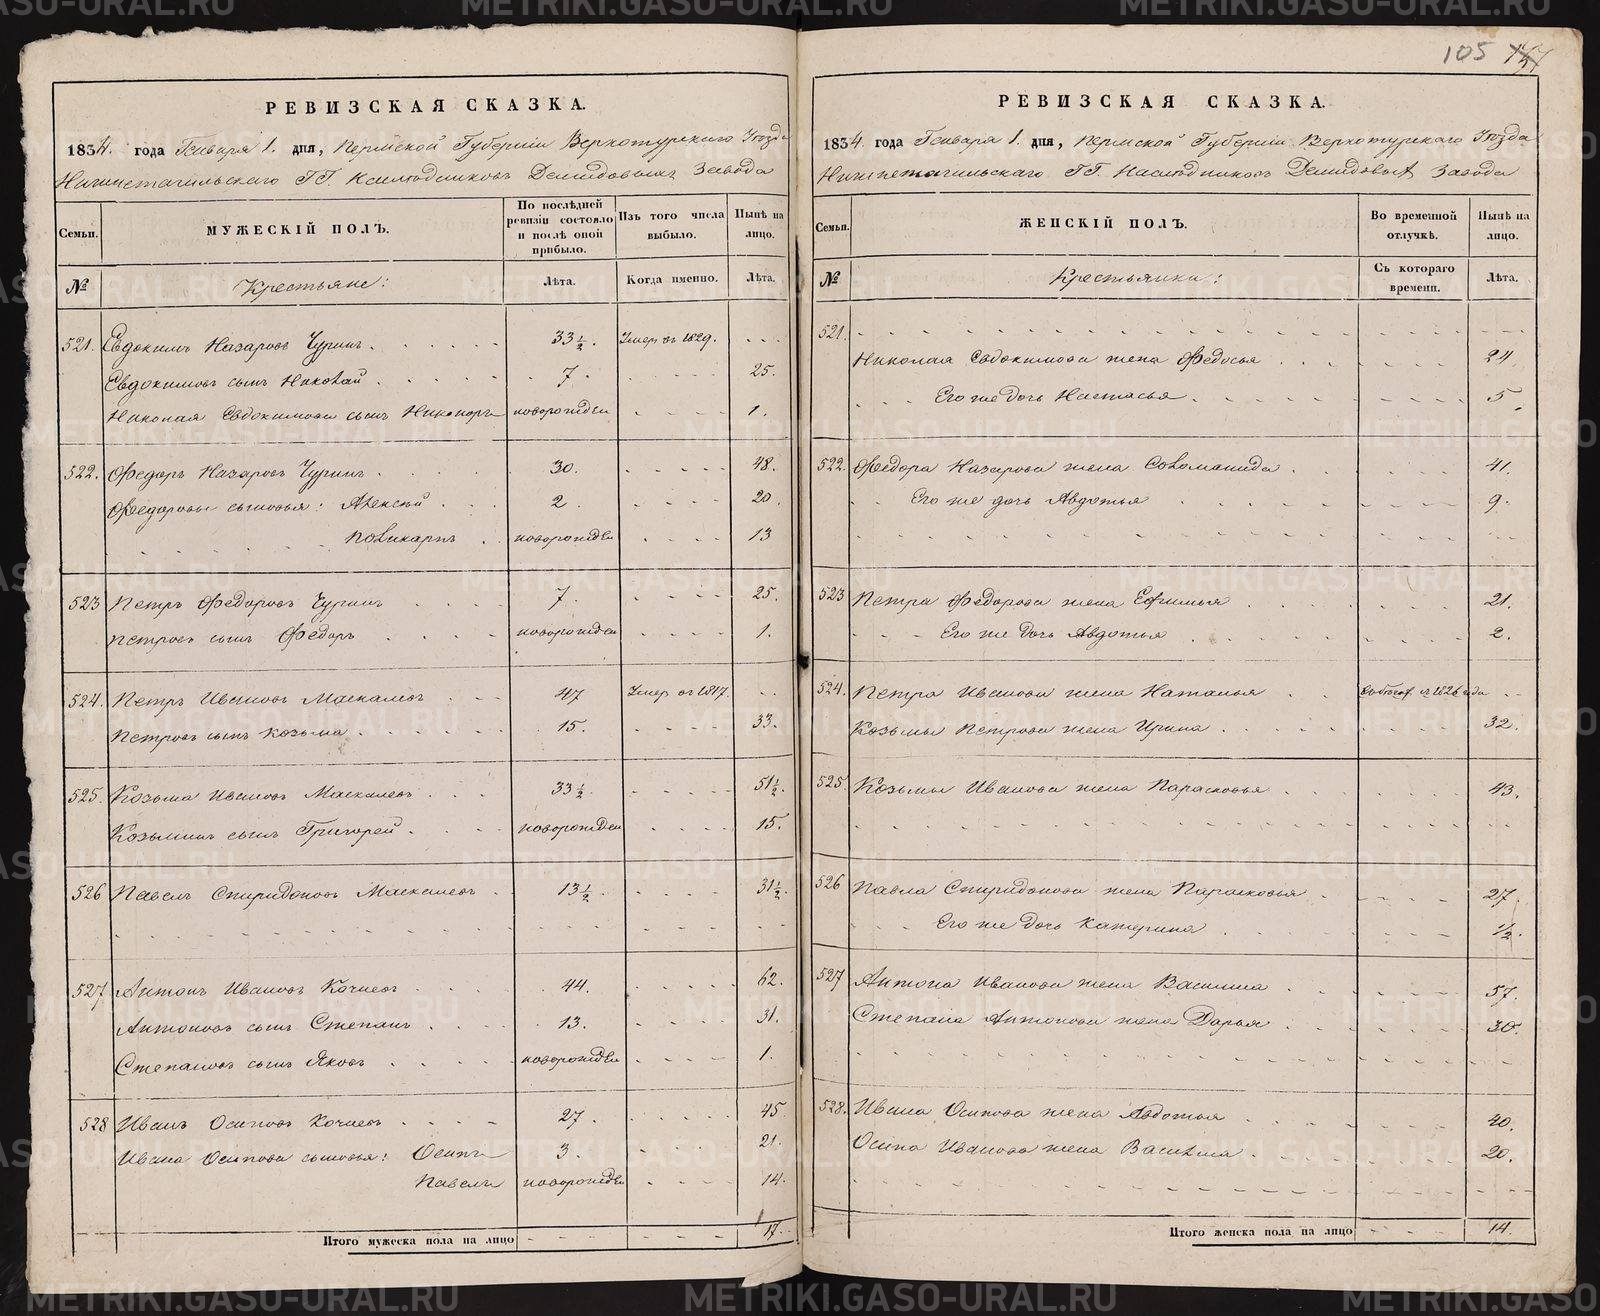 105
РЕВИЗСКАЯ СКАЗКА.
1834. года Генваря 1. дня, Пермской Губерніи Верхотурскаго Уѣзда
Нижнетагильскаго ГГ. Наслѣдниковъ Демидовыхъ Завода
Семьи.
МУЖЕСКІЙ ПОЛЪ.
По послѣдней ревизіи состояло и послѣ оной прибыло.
Изъ того числа выбыло.
Нынѣ на лицо.
№
Крестьяне:
Лѣта.
Когда именно.
Лѣта.
521. Евдокимъ Назаровъ Чуринъ 33 1/2. Умер въ 1829.
Евдокимовъ сынъ Николай 7. 25.
Николая Евдокимова сынъ Никаноръ новорожден 1.
522. Федоръ Назаровъ Чуринъ 30. 48.
Федоровы сыновья: Алексѣй 2. 20.
Поликарпъ новорожден 13
523 Петръ Федоровъ Чуринъ 7. 25.
Петровъ сынъ Федоръ новорожден 1.
524. Петръ Ивановъ Маскалевъ 47 Умер въ 1817.
Петровъ сынъ Козьма 15. 33.
525. Козьма Ивановъ Маскалевъ 33 1/2. 51 1/2.
Козьминъ сынъ Григорей новорожден 15.
526 Павелъ Спиридоновъ Маскалевъ 13 1/2. 31 1/2.
527 Антонъ Ивановъ Кочневъ 44. 62.
Антоновъ сынъ Степанъ 13. 31.
Степановъ сынъ Яковъ новорожден 1.
528 Иванъ Осиповъ Кочневъ 27. 45.
Ивана Осипова сыновья: Осипъ 3. 21.
Павелъ новорожден 14.
Итого мужеска пола на лицо 17.
РЕВИЗСКАЯ СКАЗКА.
1834. года Генваря 1. дня, Пермской Губерніи Верхотурскаго Уѣзда
Нижнетагильскаго ГГ. Наслѣдниковъ Демидовыхъ Завода
Семьи.
ЖЕНСКІЙ ПОЛЪ.
Во временной отлучкѣ.
Нынѣ на лицо.
№
Крестьянки:
Съ котораго времени.
Лѣта.
521.
Николая Евдокимова жена Федосья 24.
Его же дочь Настасья 5.
522. Федора Назарова жена Соломанида 41.
Его же дочь Авдотья 9.
523 Петра Федорова жена Ефимья 21.
Его же дочь Авдотья 2.
524. Петра Иванова жена Наталья 1826 года
Козьмы Петрова жена Ирина 32.
525. Козьмы Иванова жена Парасковья 43.
526 Павла Спиридонова жена Парасковья 27.
Его же дочь Катерина 1/2.
527 Антона Иванова жена Василиса 57.
Степана Антонова жена Дарья 30.
528. Ивана Осипова жена Авдотья 40.
Осипа Иванова жена Василиса 20.
Итого женска пола на лицо 14.
METRIKI.GASO-URAL.RU